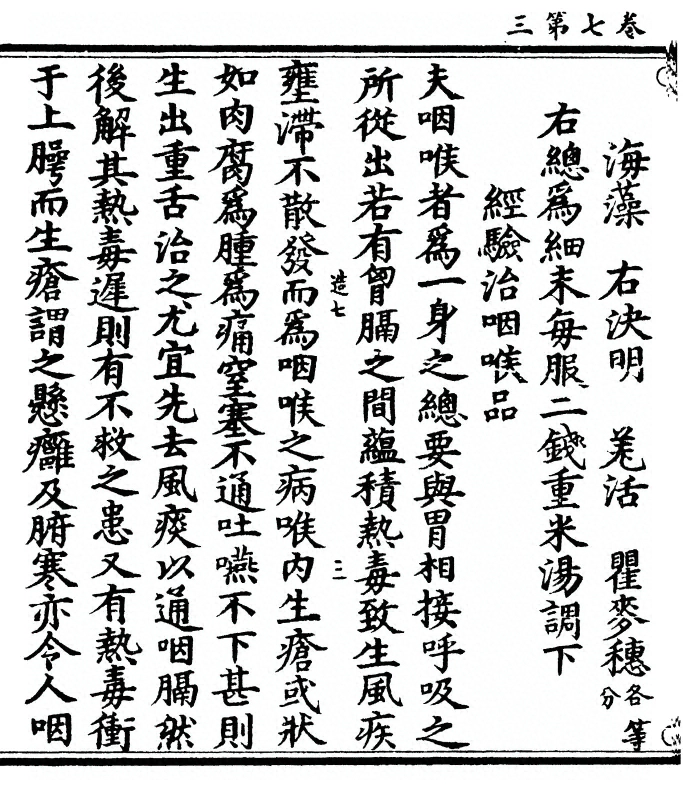 三第七卷
海藻　右決明　羗活　瞿麥穗各等分
右總爲細末每服二錢重米湯調下
經驗治咽喉品
夫咽喉者爲一身之總要與胃相接呼吸之
所從出若有胷膈之間蘊積熱毒致生風疾
造七　三
壅滯不散發而爲咽喉之病喉內生瘡或狀
如肉腐爲腫爲痛窒塞不通吐嚥不下甚則
生出重舌治之尤宜先去風痰以通咽膈然
後解其熱毒遲則有不救之患又有熱毒衝
于上腭而生瘡謂之懸癰及腑寒亦令人咽